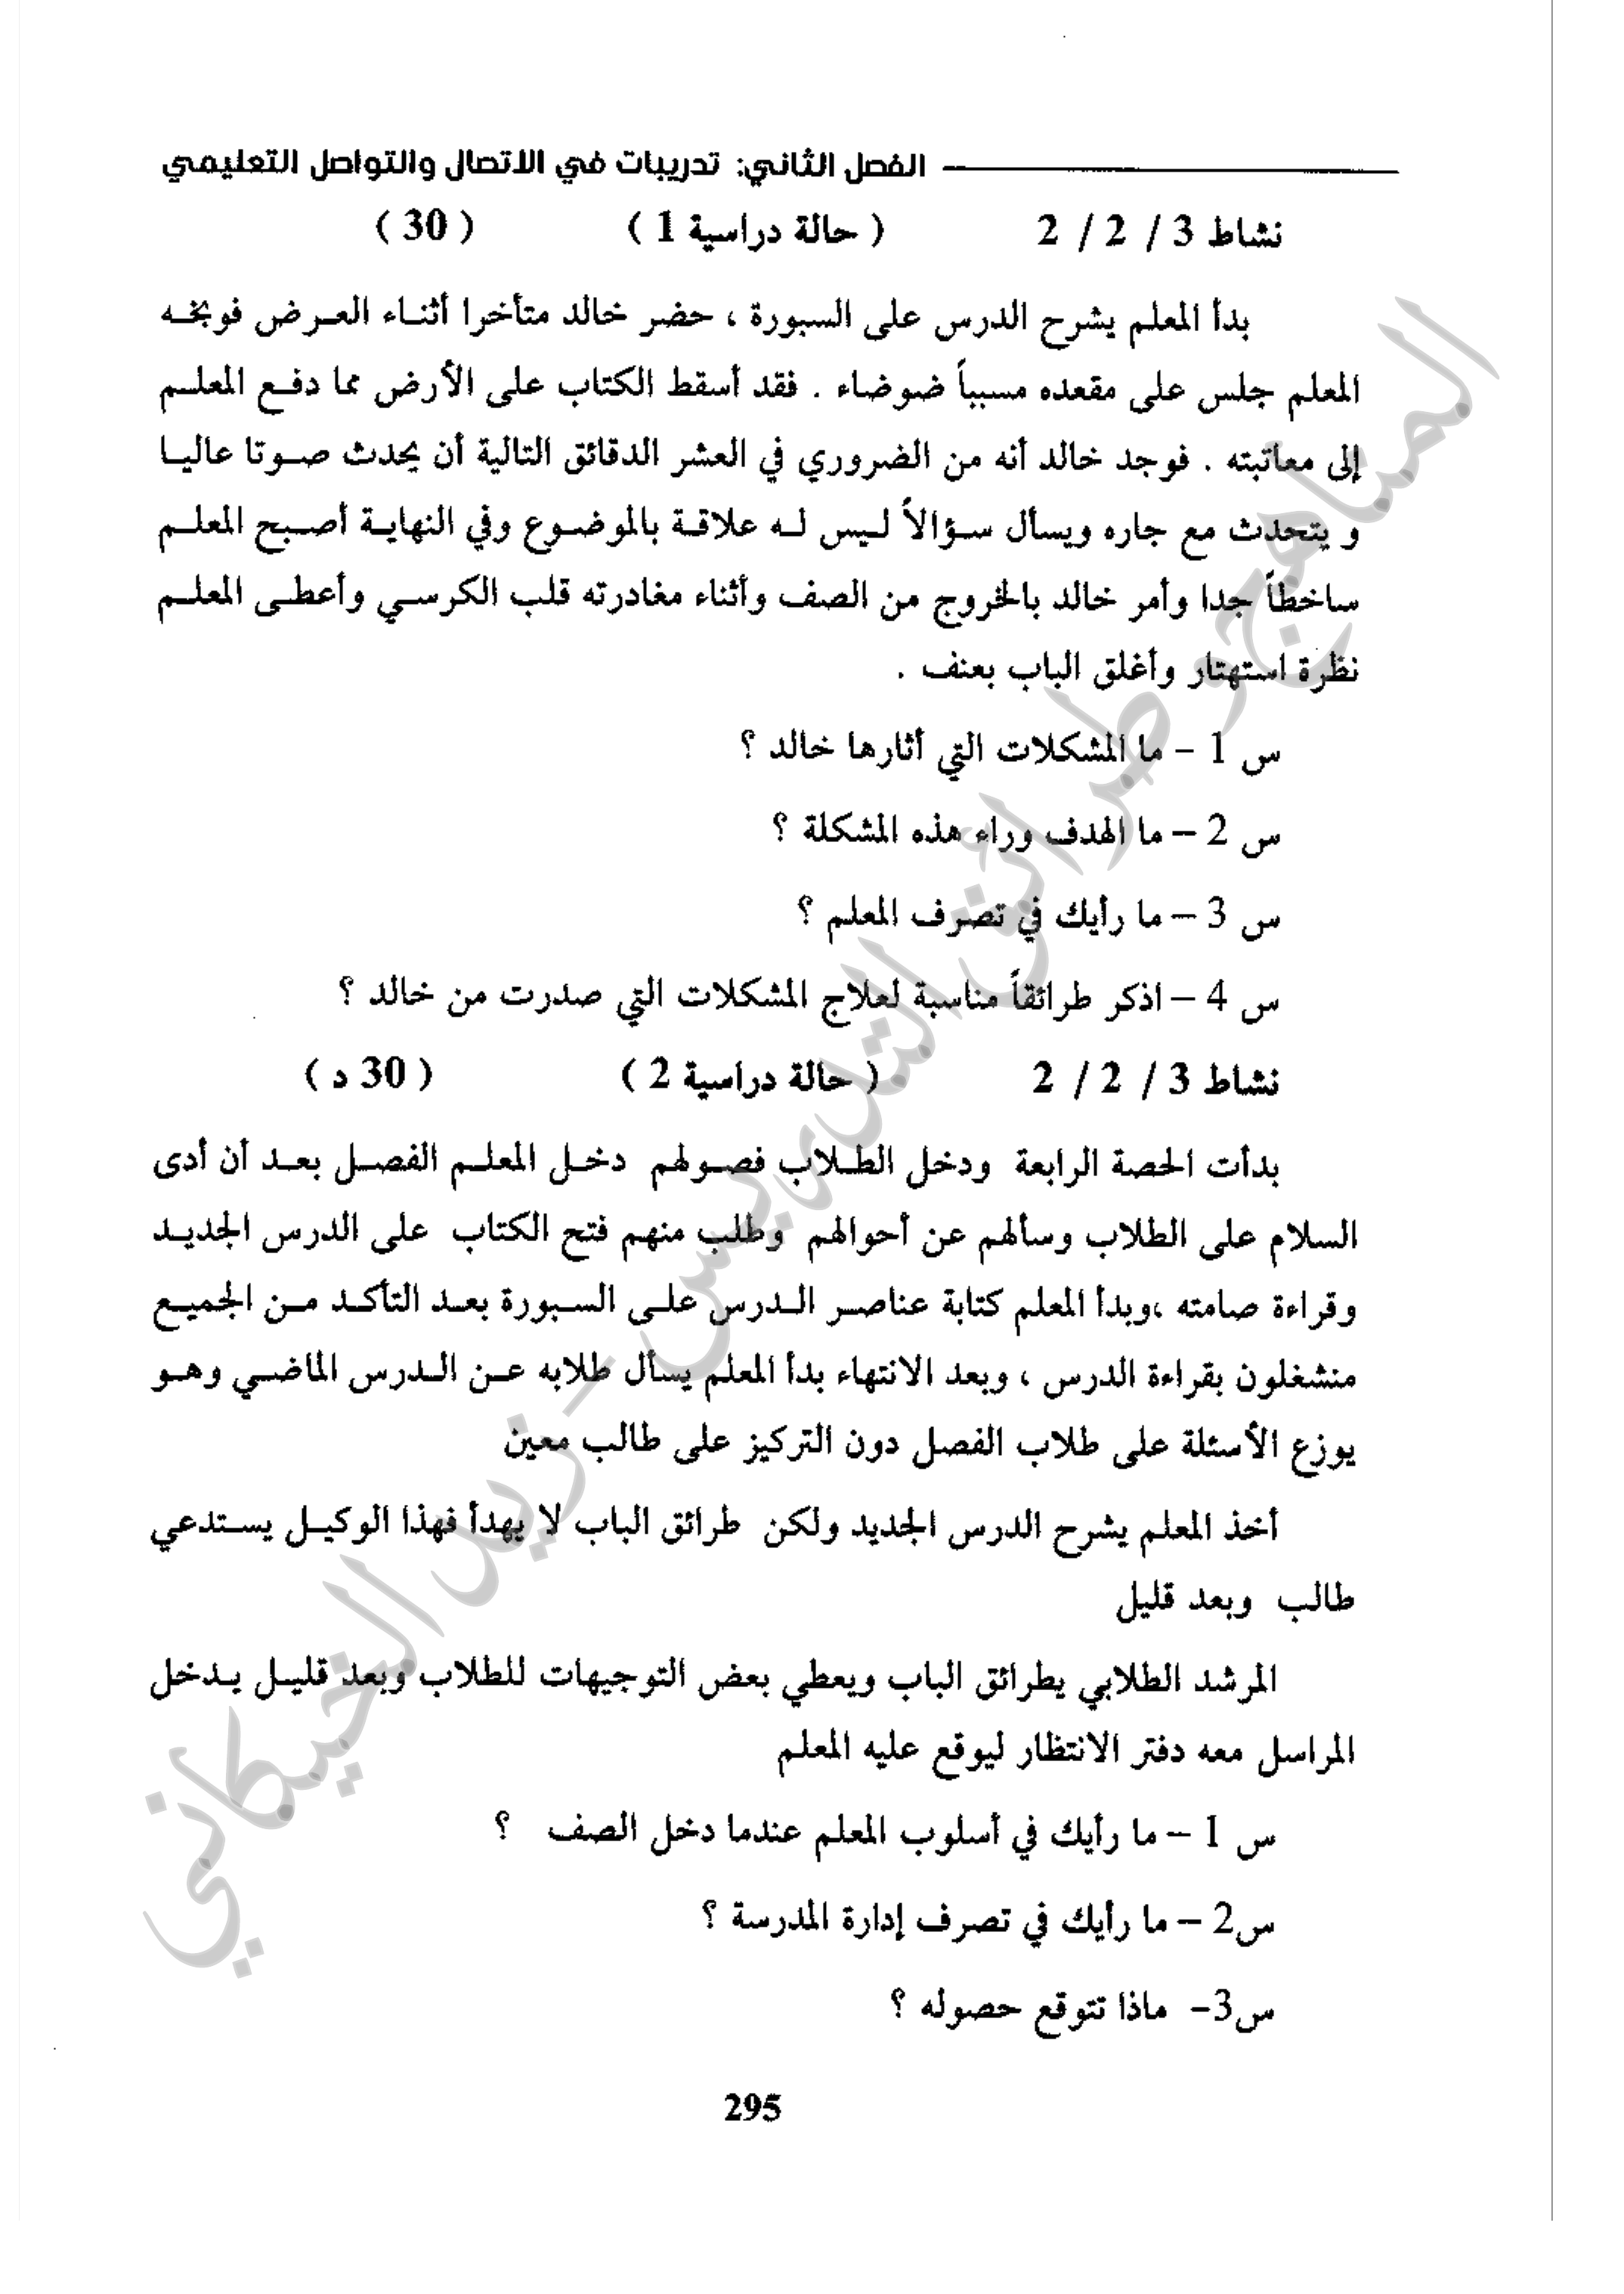 الفصل الثاني: تدريبات في الاتصال والتواصل التعليمي
نشاط 3 / 2 / 2 ( حالة دراسية 1 ) ( 30 )
بدأ المعلم يشرح الدرس على السبورة ، حضر خالد متأخرا أثناء العرض فوبخه
المعلم جلس على مقعده مسبباً ضوضاء . فقد أسقط الكتاب على الأرض مما دفع المعلم
إلى معاتبته . فوجد خالد أنه من الضروري في العشر الدقائق التالية أن يحدث صوتا عاليا
و يتحدث مع جاره ويسأل سؤالاً ليس له علاقة بالموضوع وفي النهاية أصبح المعلم
ساخطاً جدا وأمر خالد بالخروج من الصف وأثناء مغادرته قلب الكرسي وأعطى المعلم
نظرة استهتار وأغلق الباب بعنف .
س 1 – ما المشكلات التي أثارها خالد ؟
س 2 – ما الهدف وراء هذه المشكلة ؟
س 3 – ما رأيك في تصرف المعلم ؟
س 4 – اذكر طرائقاً مناسبة لعلاج المشكلات التي صدرت من خالد ؟
نشاط 3 / 2 / 2 ( حالة دراسية 2 ) ( 30 د )
بدأت الحصة الرابعة ودخل الطلاب فصولهم دخل المعلم الفصل بعد أن أدى
السلام على الطلاب وسألهم عن أحوالهم وطلب منهم فتح الكتاب على الدرس الجديد
وقراءة صامته ،وبدأ المعلم كتابة عناصر الدرس على السبورة بعد التأكد من الجميع
منشغلون بقراءة الدرس ، وبعد الانتهاء بدأ المعلم يسأل طلابه عن الدرس الماضي وهو
يوزع الأسئلة على طلاب الفصل دون التركيز على طالب معين
أخذ المعلم يشرح الدرس الجديد ولكن طرائق الباب لا يهدأ فهذا الوكيل يستدعي
طالب وبعد قليل
المرشد الطلابي يطرائق الباب ويعطي بعض التوجيهات للطلاب وبعد قليل يدخل
المراسل معه دفتر الانتظار ليوقع عليه المعلم
س 1 – ما رأيك في أسلوب المعلم عندما دخل الصف ؟
س2 – ما رأيك في تصرف إدارة المدرسة ؟
س3- ماذا تتوقع حصوله ؟
295
المناهج وطرائق التدريس - زيد الخيكاني